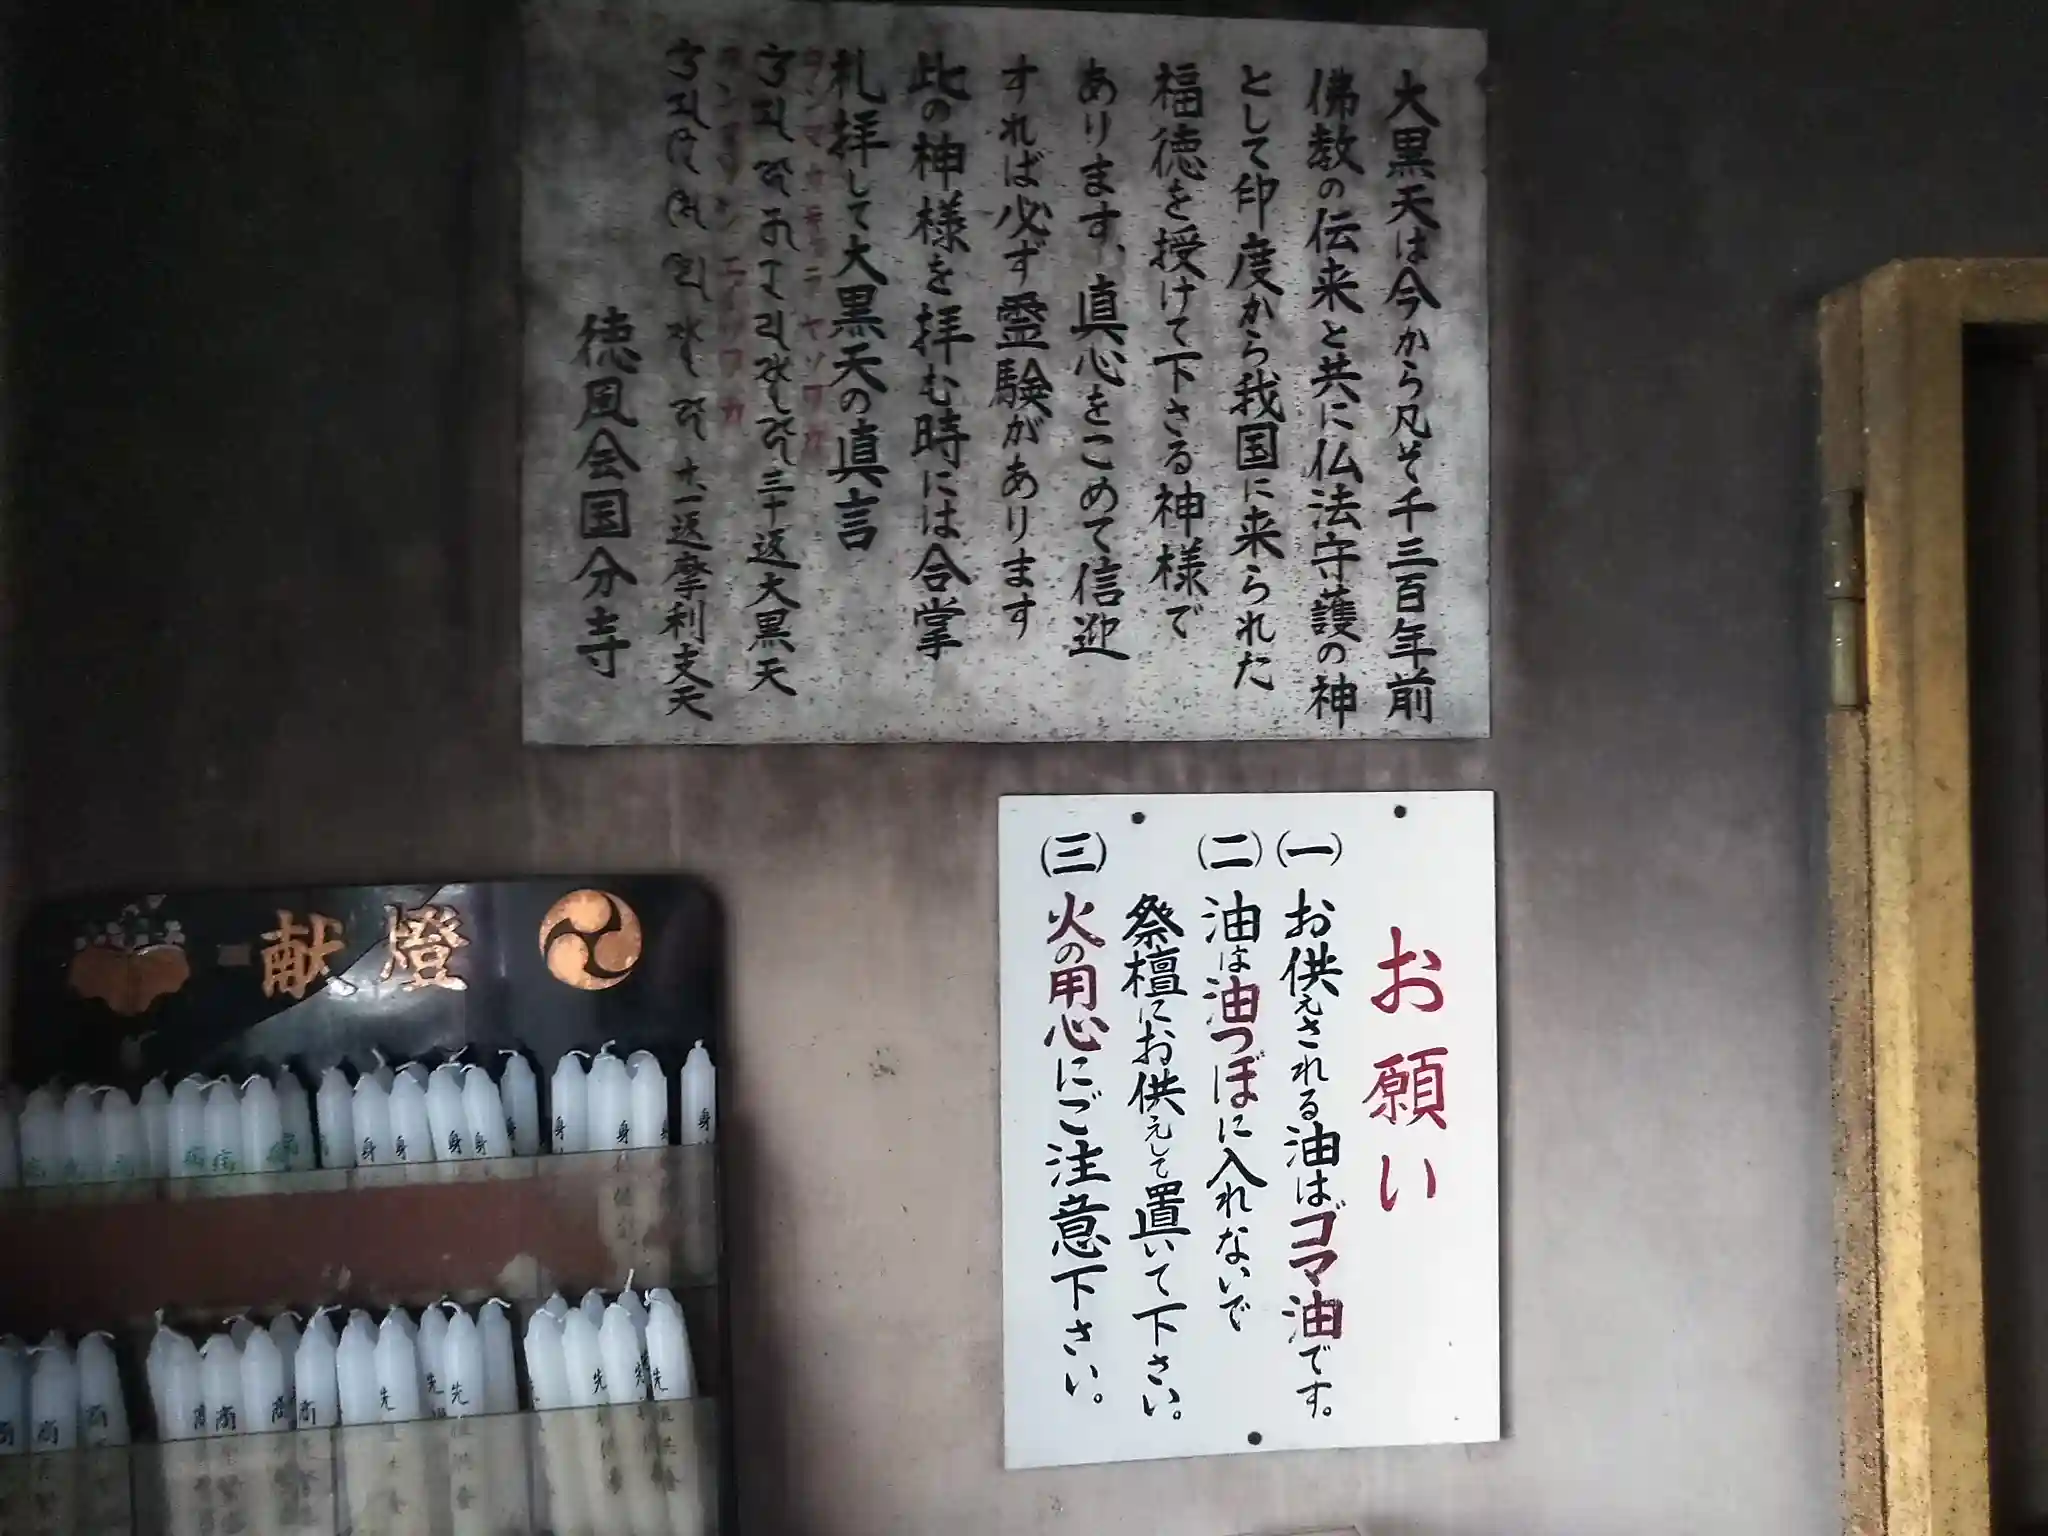 大黒天は今から凡そ千三百年前
佛教の伝来と共に仏法守護の神
として印度から我国に来られた
福徳を授けて下さる神様で
あります、真心をこめて信迎
すれば必ず霊験があります
此の神様を拝む時には合掌
礼拝して大黒天の真言
三十返大黒天
十一返摩利支天
徳風会国分寺
お願い
(一)お供えされる油はゴマ油です。
(二)油は油つぼに入れないで
祭檀にお供えして置いて下さい。
(三)火の用心にご注意下さい。
献燈
身
身
身
身
身
身
身
商
商
商
商
先
先
先
先
先